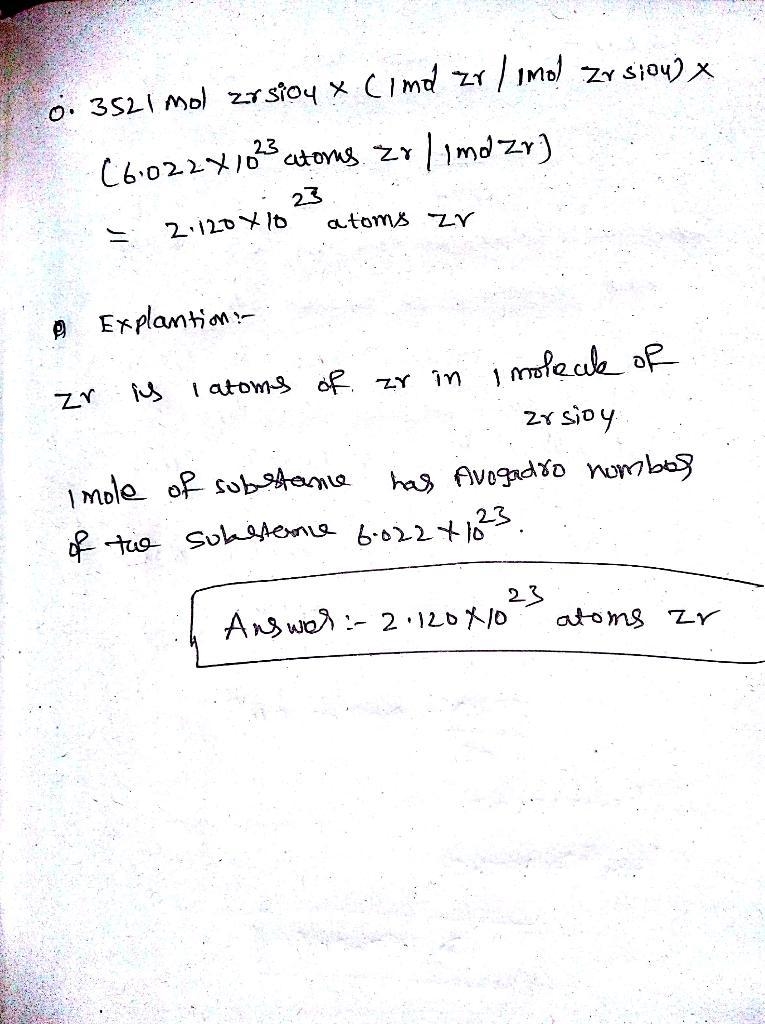 0. 3521 mol zrsio4 x (1mol zr / 1mol zrsio4) x
(6.022x10^23 atoms zr / 1mol zr)
= 2.120x10^23 atoms zr
Explantion:-
zr is 1 atoms of zr in 1 molecule of
zrsio4
1mole of substance has Avogadro number
of the substence 6.022x10^23.
Answer:- 2.120x10^23 atoms zr